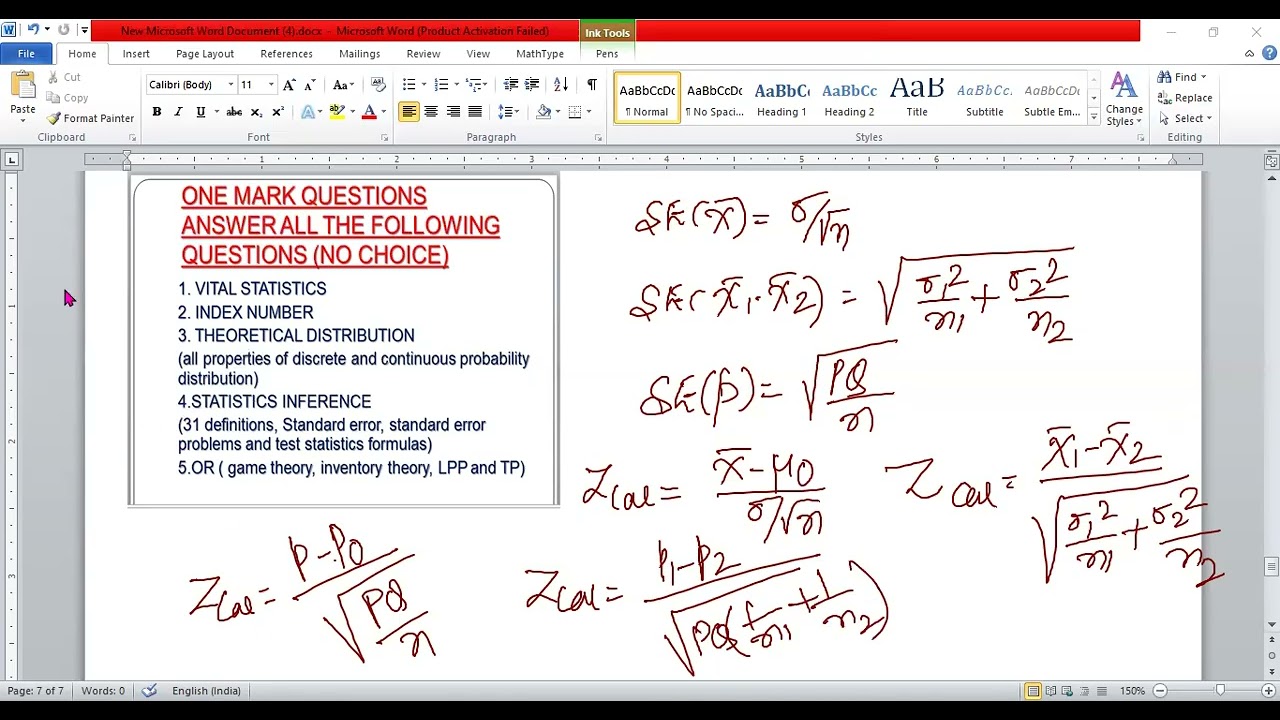 New Microsoft Word Document (4).docx - Microsoft Word (Product Activation Failed)
Ink Tools
File Home Insert Page Layout References Mailings Review View MathType Pens
Paste
Cut
Copy
Format Painter
Clipboard
Calibri (Body) 11
Font
Paragraph
AaBbCcDc AaBbCcDc AaBbCc AaBbCc AaB AaBbCc. AaBbCcDc
¶ Normal ¶ No Spaci... Heading 1 Heading 2 Title Subtitle Subtle Em...
Styles
Change Styles
Find
Replace
Select
Editing
1 2 3 4 5 6 7
ONE MARK QUESTIONS
ANSWER ALL THE FOLLOWING
QUESTIONS (NO CHOICE)
1. VITAL STATISTICS
2. INDEX NUMBER
3. THEORETICAL DISTRIBUTION
(all properties of discrete and continuous probability
distribution)
4.STATISTICS INFERENCE
(31 definitions, Standard error, standard error
problems and test statistics formulas)
5.OR ( game theory, inventory theory, LPP and TP)
SE(x̄) = σ/√n
SE(x̄1 - x̄2) = √(σ1²/n1 + σ2²/n2)
SE(p) = √(PQ/n)
Zcal = (x̄ - μ0)/(σ/√n)
Zcal = (x̄1 - x̄2)/√(σ1²/n1 + σ2²/n2)
Zcal = (p - P0)/√(PQ/n)
Zcal = (p1 - p2)/√(PQ(1/n1 + 1/n2))
Page: 7 of 7 Words: 0 English (India) 150%